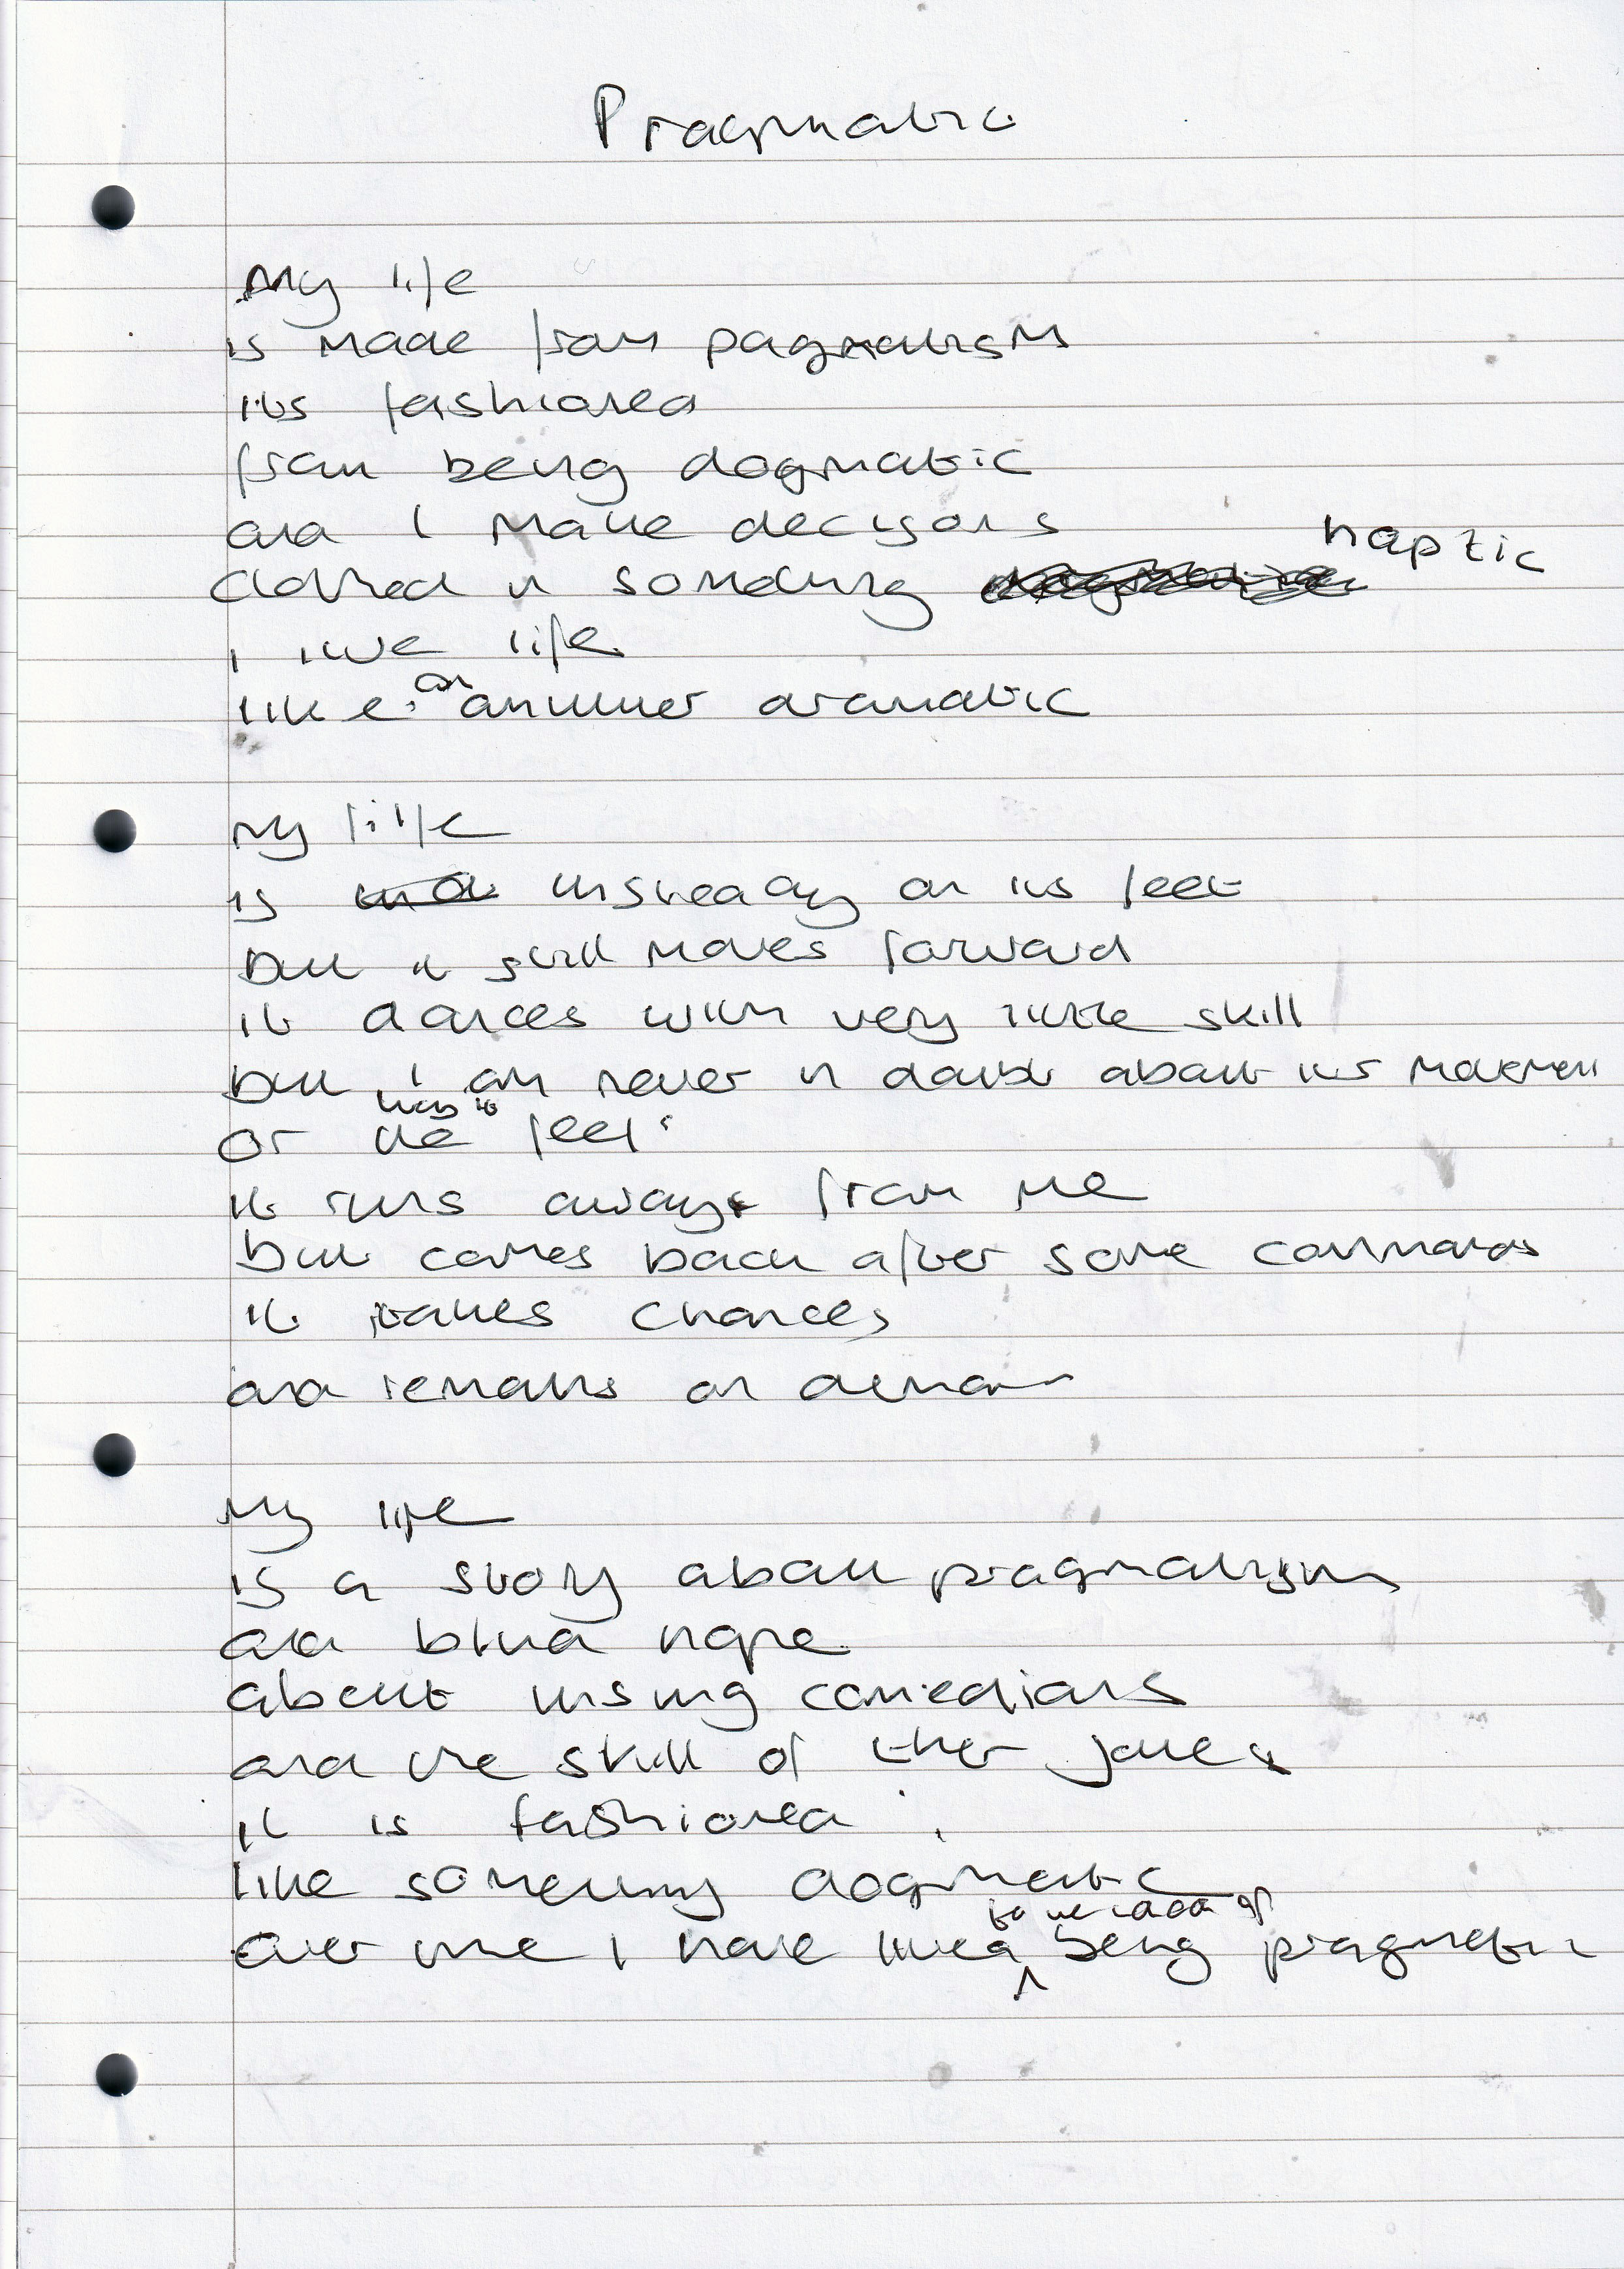 Pragmatic
My life
is made from pagmatism
its fashioned
from being dogmatic
and I make decisions
clothed in something haptic
I live life
like an answer dramatic
My life
is unsteady on its feet
but it still moves forward
it dances with very little skill
but I am never in doubt about its movement
or how it feels
it runs away from me
but comes back after some commands
it takes chances
and remains on demand
My life
is a story about pragmatism
and blind hope
about unsung comedians
and the skill of their jokes
it is fashioned
like something dogmatic
over time I have lived to the of being pragmatic